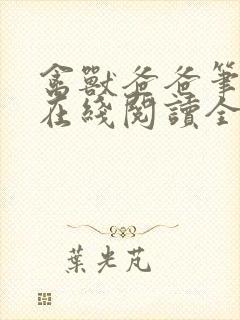 禽獸爸爸筆
在綫閱讀全
葉光芃